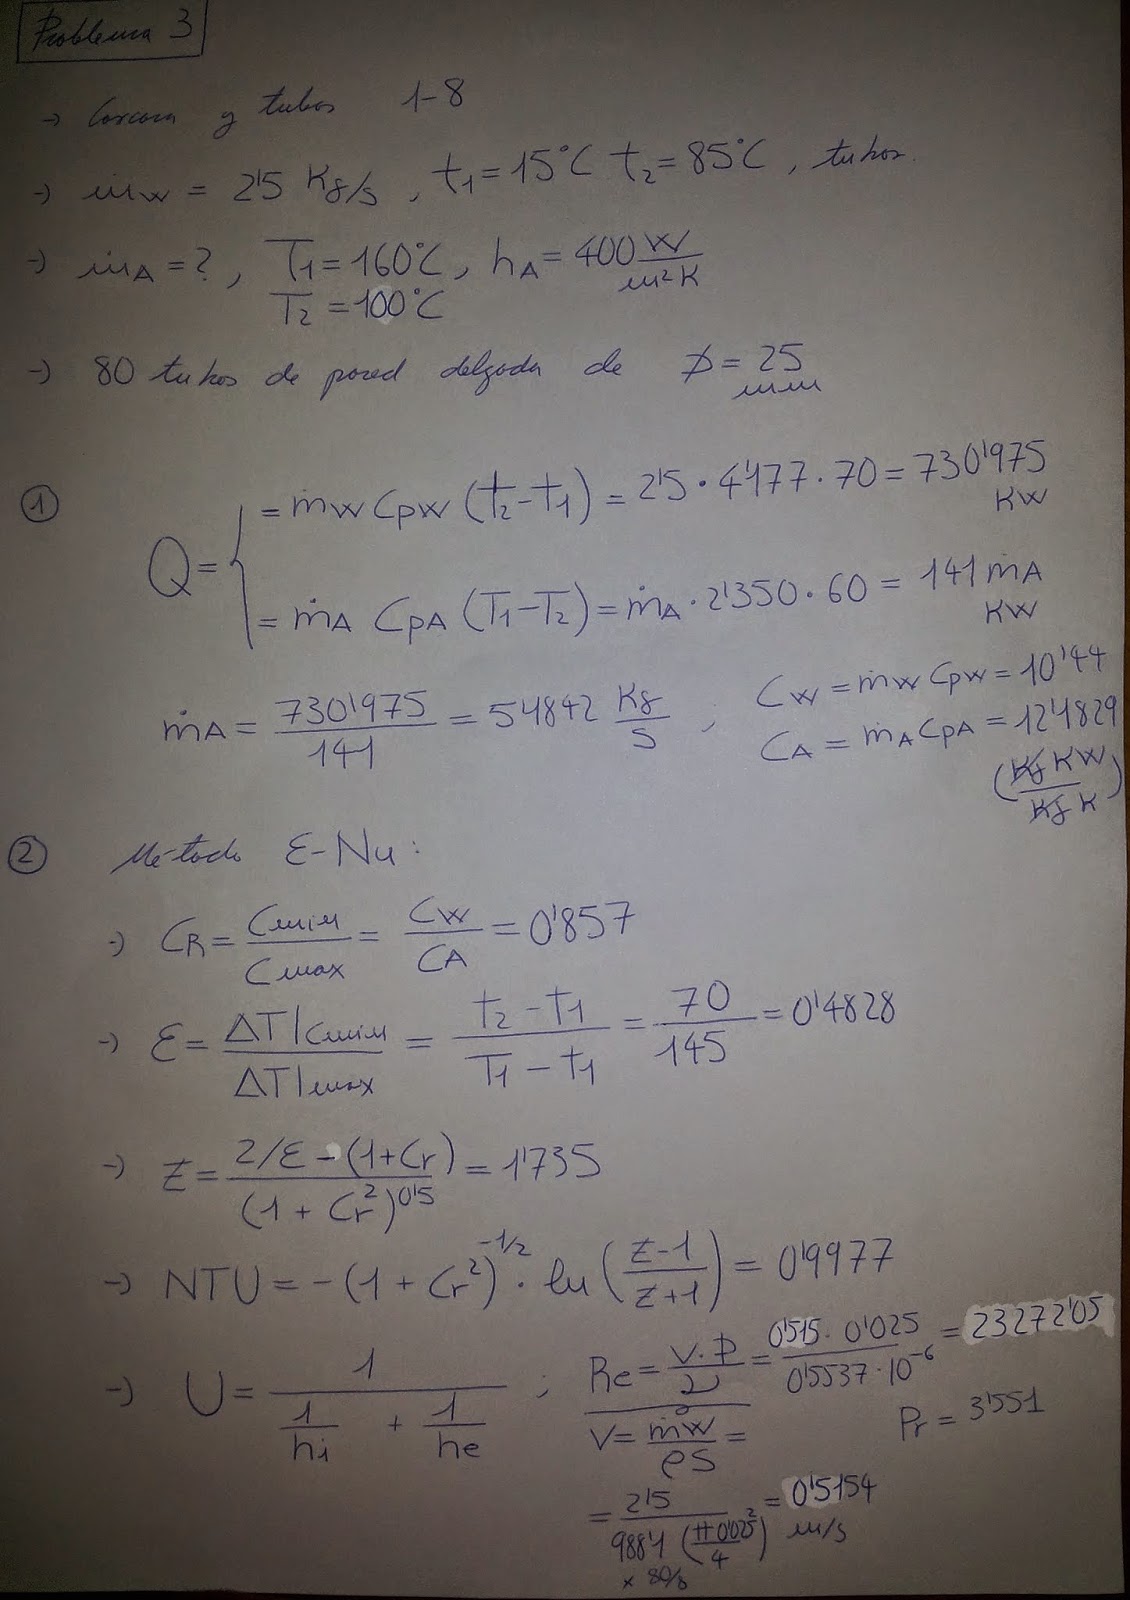 Problema 3
→ Carcasa y tubos 1-8
→ ṁw = 2'5 Kg/s, t1 = 15°C t2 = 85°C, tubos.
→ ṁA = ?, T1 = 160°C, hA = 400 W/m²K
T2 = 100°C
→ 80 tubos de pared delgada de Ø = 25 mm
① Q = { = ṁw Cpw (t2 - t1) = 2'5 · 4'177 · 70 = 730'975 KW
= ṁA CpA (T1 - T2) = ṁA · 2'350 · 60 = 141 ṁA KW
ṁA = 730'975 / 141 = 5'1842 Kg/s ; Cw = ṁw Cpw = 10'44
CA = ṁA CpA = 12'1829
(Kg KW / Kg K)
② Método ε-Nu:
→ CR = Cmin / Cmax = Cw / CA = 0'857
→ ε = ΔT|cmin / ΔT|max = (t2 - t1) / (T1 - t1) = 70 / 145 = 0'4828
→ Z = (2/ε - (1 + Cr)) / (1 + Cr²)^0'5 = 1'735
→ NTU = -(1 + Cr²)^-1/2 · ln((Z - 1) / (Z + 1)) = 0'9977
→ U = 1 / (1/hi + 1/he) ; Re = V·D / ν = 0'515 · 0'025 / 0'5537·10^-6 = 23272'05
Pr = 3'551
V = ṁw / ρS =
= 2'5 / 988'1 (π 0'025² / 4) x 80/8 = 0'5154 m/s